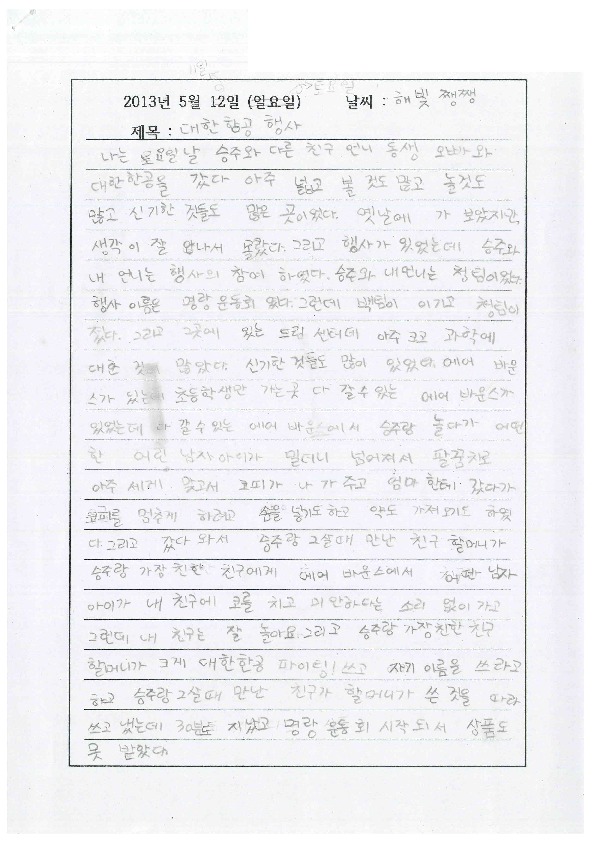 2013년 5월 12일 (일요일) 날씨 : 해빛 쨍쨍
제목 : 대한항공 행사
나는 토요일날 승주와 다른 친구 언니 동생 오빠와
대한한공을 갔다 아주 넓고 볼 것도 많고 놀것도
많고 신기한 것들도 많은 곳이었다. 옛날에 가 보았지만
생각이 잘 안나서 몰랐다. 그리고 행사가 있었는데 승주와
내 언니는 행사의 참여 하였다. 승주와 내언니는 청팀이었다.
행사 이름은 명랑 운동회 였다. 그런데 백팀이 이기고 청팀이
졌다. 그리고 그곳에 있는 드림 센터데 아주 크고 과학에
대한 것이 많았다. 신기한 것들도 많이 있었다. 에어 바운
스가 있는데 초등학생만 가는곳 다 갈수있는 에어 바운스가
있었는데 다 갈수 있는 에어 바운스에서 승주랑 놀다가 어떤
한 어린 남자아이가 밀더니 넘어져서 팔꿈치로
아주 세게 맞고서 코피가 나 가주고 엄마 한테 갔다가
코피를 멈추게 하려고 솜을 넣기도 하고 약도 가져오기도 하였
다. 그리고 갔다 와서 승주랑 2살때 만난 친구 할머니가
승주랑 가장 친한 친구에게 에어 바운스에서 어떤 남자
아이가 내 친구에 코를 치고 미안하다는 소리 없이 가고
그런데 내 친구는 잘 놀아요. 그리고 승주랑 가장친한 친구
할머니가 크게 대한한공 파이팅! 쓰고 자기 이름을 쓰라고
하고 승주랑 2살때 만난 친구가 할머니가 쓴 것을 따라
쓰고 냈는데 30분도 지났고 명랑 운동회 시작되서 상품도
못 받았다